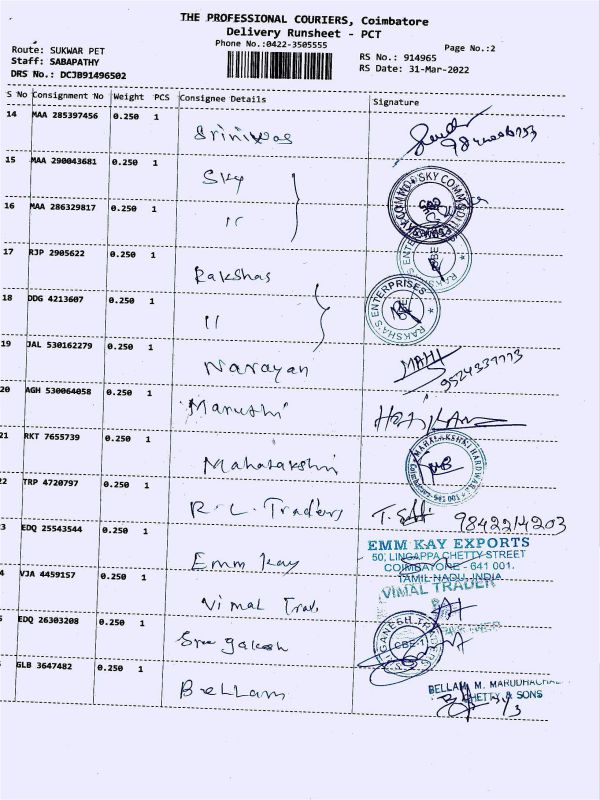 THE PROFESSIONAL COURIERS, Coimbatore
Delivery Runsheet - PCT
Phone No.:0422-3505555
Page No.:2
Route: SUKWAR PET
Staff: SABAPATHY
DRS No.: DCJB91496502
RS No.: 914965
RS Date: 31-Mar-2022
S No Consignment No Weight PCS Consignee Details Signature
14 MAA 285397456 0.250 1 Srinivas
15 MAA 290043681 0.250 1 Sky
SKY COMM
16 MAA 286329817 0.250 1 "
17 RJP 2905622 0.250 1 Rakshas
RAKSHA'S ENTERPRISES
18 DDG 4213607 0.250 1 11
19 JAL 530162279 0.250 1 Narayan MAHI
9524337773
20 AGH 530064058 0.250 1 Maruthi
21 RKT 7655739 0.250 1 Mahalakshmi
MAHALAKSHMI HARDWARE
Coimbatore - 641 001
2 TRP 4720797 0.250 1 R. L. Traders 9842214203
3 EDQ 25543544 0.250 1 Emm kay
EMM KAY EXPORTS
50, LINGAPPA CHETTY STREET
COIMBATORE - 641 001.
TAMIL NADU, INDIA
4 VJA 4459157 0.250 1 Vimal Trad.
VIMAL TRADER
EDQ 26303208 0.250 1 Sree ganesh
GANESH TR
CBE-1
GLB 3647482 0.250 1 Bellam
BELLAM M. MARUDHACHAL
CHETTY & SONS